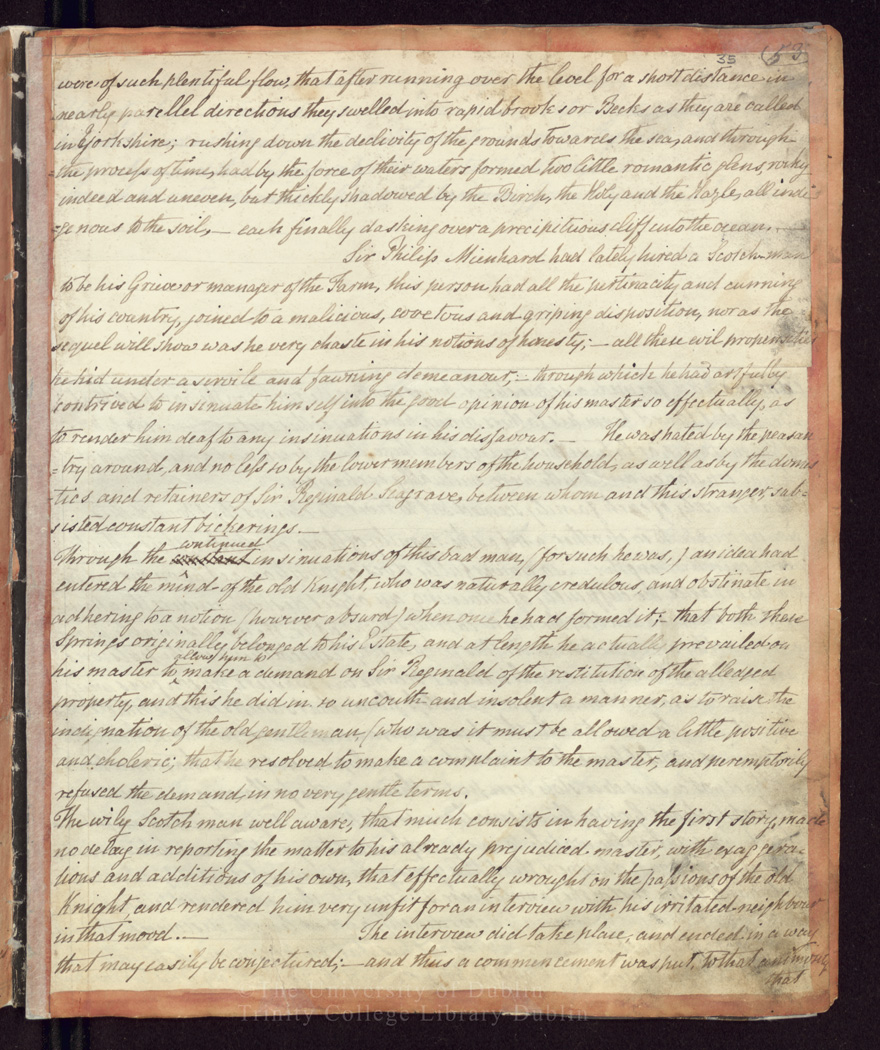 35 (53
were of such plentiful flow, that after running over the level for a short distance in
nearly parellel directions they swelled into rapid brooks or Becks as they are called
in Yorkshire; rushing down the declivity of the grounds towards the sea, and through
the process of time, had by the force of their waters formed two little romantic glens, rocky
indeed and uneven, but thickly shadowed by the Birch, the Holy and the Hazle, all indi-
=genous to the soil, — each finally dashing over a precipituous cliff into the ocean. —
Sir Philip Mienhard had lately hired a Scotch-man
to be his Grieve or manager of the Farm, this person had all the pertinacity and cunning
of his country, joined to a malicious, covetous and griping disposition, nor as the
sequel will show was he very chaste in his notions of honesty; — all these evil propensities
he hid under a servile and fawning demeanour; — through which he had artfully
contrived to insinuate himself into the good opinion of his master so effectually, as
to render him deaf to any insinuations in his disfavour. — He was hated by the peasan
=try around, and no less so by the lower members of the household, as well as by the domes
tics and retainers of Sir Reginald Seagrave, between whom and this stranger, sub=
sisted constant bickerings. —
continued
Through the constant insinuations of this bad man, (for such he was,) an idea had
entered the mind of the old Knight, who was naturally credulous, and obstinate in
adhering to a notion (however absurd) when once he had formed it; — that both these
Springs originally belonged to his Estate, and at length he actually prevailed on
allow him to
his master to make a demand on Sir Reginald of the restitution of the alledged
property, and this he did in so uncouth and insolent a manner, as to raise the
indignation of the old gentleman (who was it must be allowed a little positive
and choleric; that he resolved to make a complaint to the master, and peremptorily
refused the demand in no very gentle terms.
The wily Scotch man well aware, that much consists in having the first story, made
no delay in reporting the matter to his already prejudiced master, with exaggera-
tions and additions of his own, that effectually wrought on the passions of the old
Knight, and rendered him very unfit for an interview with his irritated neighbour
in that mood. — The interview did take place, and ended in a way
that may easily be conjectured; — and thus a commencement was put, to that animosity
that
The University of Dublin
Trinity College Library Dublin